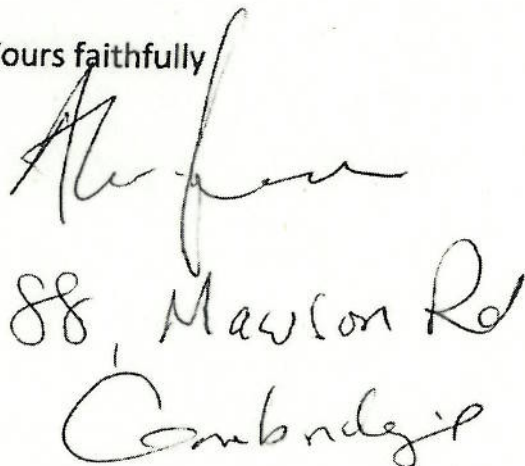 Yours faithfully
88, Mawson Rd
Cambridge